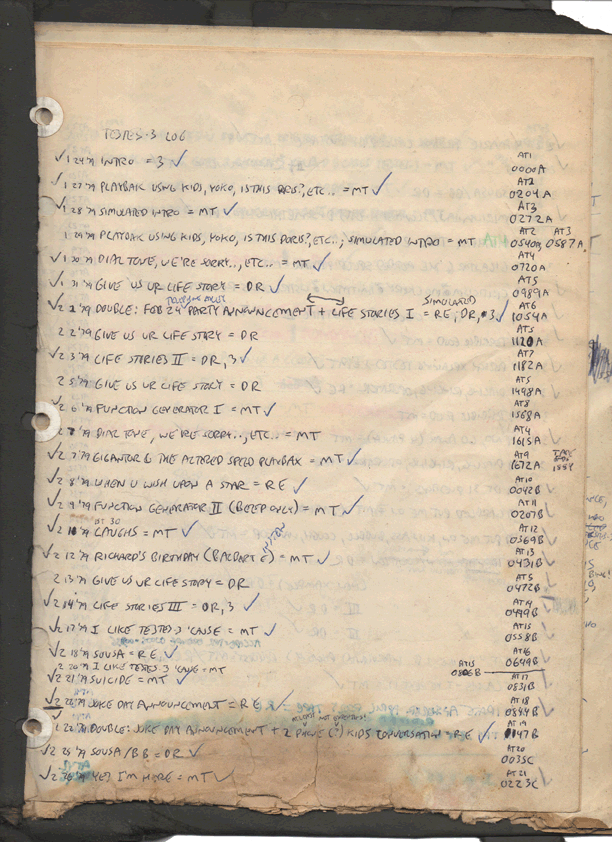 TESTES·3 206
AT1
√1 24'79 INTRO = 3 ✓ 0000A
AT2
√1 27'79 PLAYBAX USING KIDS, YOKO, IS THIS DORIS?, ETC.. = MT ✓ 0204A
AT3
√1 28'79 SIMULATED INTRO = MT ✓ 0272A
AT2 AT3
1 29'79 PLAYBAX USING KIDS, YOKO, IS THIS DORIS?, ETC.., SIMULATED INTRO = MT 0540A, 0587A
AT4
√1 30'79 DIAL TONE, WE'RE SORRY.., ETC.. = MT ✓ 0720A
AT5
√1 31'79 GIVE US UR LIFE STORY = DR ✓ 0989A
SIMULATED AT6
√2 2'79 DOUBLE: FEB 24 PARTY ANNOUNCEMENT + LIFE STORIES I = RE; DR, 3 ✓ 1054A
AT5
2 2'79 GIVE US UR LIFE STORY = DR 1120A
AT7
√2 3'79 LIFE STORIES II = DR, 3 ✓ 1182A
AT5
2 5'79 GIVE US UR LIFE STORY = DR 1498A
AT8
√2 6'79 FUNCTION GENERATOR I = MT ✓ 1568A
AT4
2 7'79 DIAL TONE, WE'RE SORRY.., ETC.. = MT 1615A
AT9
√2 7'79 GIGANTOR & THE ALTERED SPEED PLAYBAX = MT ✓ 1672A
AT10
√2 8'79 WHEN U WISH UPON A STAR = RE ✓ 0042B
AT11
√2 9'79 FUNCTION GENERATOR II (BEEP ONLY) = MT ✓ 0207B
AT 30 AT12
√2 10'79 LAUGHS = MT ✓ 0369B
AT13
√2 12'79 RICHARD'S BIRTHDAY = MT ✓ 0431B
AT5
2 13'79 GIVE US UR LIFE STORY = DR 0472B
AT14
√2 14'79 LIFE STORIES III = DR, 3 ✓ 0499B
AT15
√2 17'79 I LIKE TESTES·3 'CAUSE = MT ✓ 0558B
AT16
√2 18'79 SOUSA = RE ✓ 0649B
2 20'79 I LIKE TESTES·3 'CAUSE = MT AT15 0806B
AT17
√2 21'79 SUICIDE = MT ✓ 0831B
AT18
√2 22'79 JOKE DAY ANNOUNCEMENT = RE ✓ 0844B
AT19
2 22'79 DOUBLE: JOKE DAY ANNOUNCEMENT + 2 PHONE (?) KIDS CONVERSATION = RE ✓ 0147B
AT20
√2 25'79 SOUSA/BB = DR ✓ 0035C
AT21
√2 26'79 YEP I'M HERE = MT ✓ 0223C